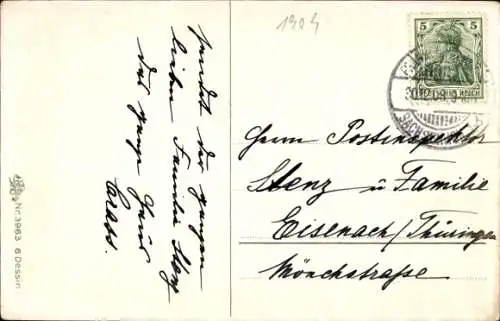 1909
sendet der ganzen
lieben Familie Stenz
das ganze Haus
Crass.
Nr. 3963 6 Dessin
5 5
DEUTSCHES REICH
30.12.09.
SACHSEN
Herrn Postinspektor
Stenz u Familie
Eisenach/Thüringen
Mönchstraße